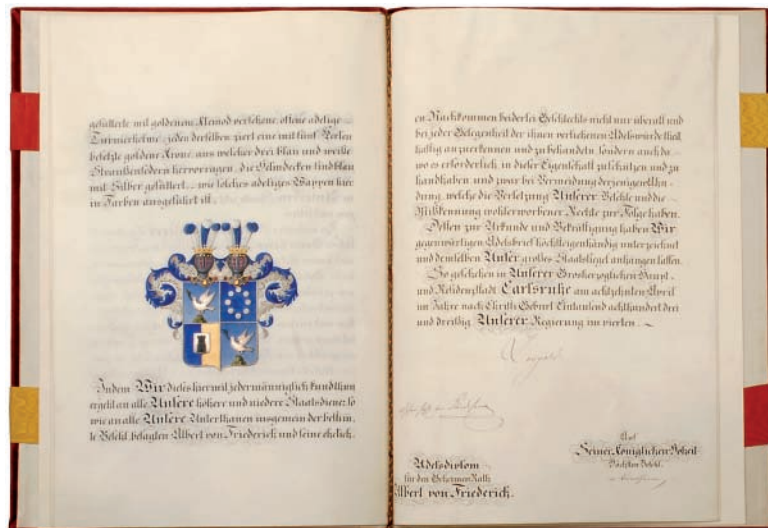 gefütterte mit goldenem Kleinod versehene offene adelige
Turnierhelme, jeden derselben ziert eine mit fünf Perlen
besetzte goldene Krone aus welcher drei blau und weiße
Straußenfedern hervorragen, die Helmdecken sind blau
mit Silber gefüttert, wie solches adeliges Wappen hier
in Farben ausgeführt ist.
Indem Wir dieses hiermit jedermänniglich kundthun
ergeht an alle Unsere höhere und niedere Staatsdiener, so
wie an alle Unsere Unterthanen insgemein der bestimm¬
te Befehl, besagten Albert von Friederich und seine ehelich¬
en Nachkommen beiderlei Geschlechts nicht nur überall und
bei jeder Gelegenheit der ihnen verliehenen Adelswürde theil
haftig anzuerkennen und zu behandeln, sondern auch da
wo es erforderlich, in dieser Eigenschaft zu schützen und zu
handhaben und zwar bei Vermeidung derjenigen Ahn¬
dung, welche die Verletzung Unserer Befehle und die
Mißkennung wohlerworbener Rechte zur Folge haben.
Dessen zur Urkunde und Bekräftigung haben Wir
gegenwärtigen Adelsbrief höchsteigenhändig unterzeichnet
und demselben Unser großes Staatssiegel anhängen lassen.
So geschehen in Unserer Großherzoglichen Haupt-
und Residenzstadt Carlsruhe am achtzehnten April
im Jahre nach Christi Geburt Eintausend achthundert drei
und dreißig Unserer Regierung im vierten.
Leopold
Auf
Seiner Königlichen Hoheit
Höchsten Befehl.
Adelsdiplom
für den Geheimen Rath
Albert von Friederich.